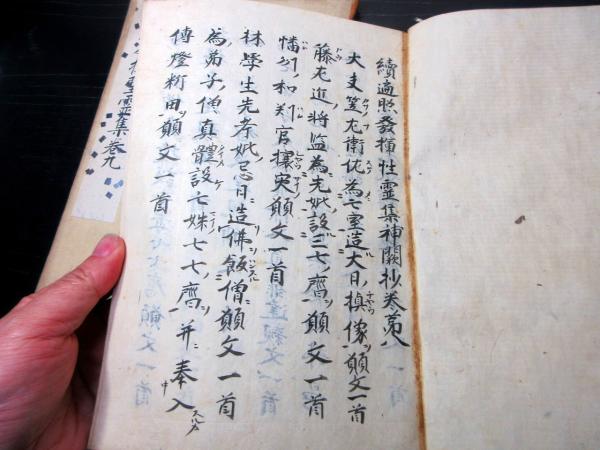 續遍照發揮性靈集補闕抄卷第八
大夫笠左衛佐為亡室造大日楨像願文一首
藤左近將監為先妣設三七齋願文一首
播州和判官攘災願文一首
林學生先考妣忌日造佛飯僧願文一首
為弟子僧真體設亡妹七七齋并奉入
傳燈料田願文一首
性靈集卷九